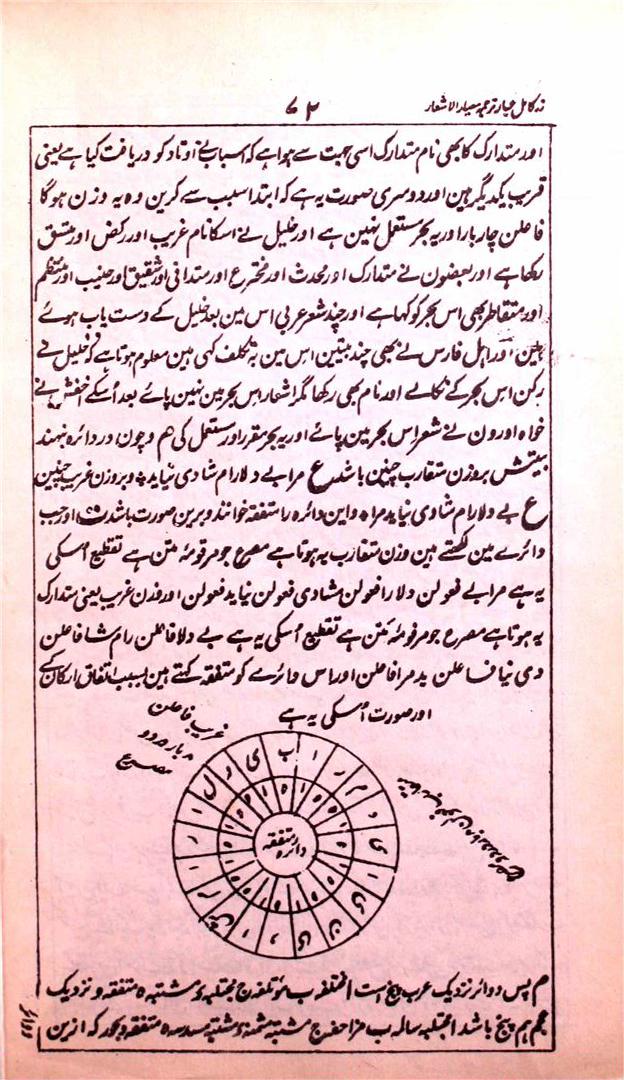 زر کامل عیار ترجمہ معیار الاشعار
۷۲
اور متدارک کا بھی نام متدارک اسی جہت سے ہوا ہے کہ اسباب نے اوتاد کو دریافت کیا ہے یعنی
قریب یکدیگر ہین اور دوسری صورت یہ ہے کہ ابتدا سبب سے کرین وہ یہ وزن ہوگا
فاعلن چار بار اور یہ بحر مستعمل نہین ہے اور خلیل نے اسکا نام غریب اور رکض اور متسق
رکھا ہے اور بعضون نے متدارک اور محدث اور مخترع اور متدانی اور شقیق اور خبب اور منتظم
اور متقاطر بھی اس بحر کو کہا ہے اور چند شعر عربی اس مین بعد خلیل کے دست یاب ہوئے
ہین اور اہل فارس نے بھی چند بیتین اس مین بہ تکلف کہی ہین معلوم ہوتا ہے کہ خلیل نے
رکن اس بحر کے نکالے اور نام بھی رکھا مگر اشعار اس بحر مین نہین پائے بعد اُسکے اخفش نے
خواہ اورون نے شعر اس بحر مین پائے اور یہ بحر مقرر اور مستعمل کی ھم و چون در دائرہ نہند
بیتش بروزن متقارب چنین باشد ع مرا بے دلارام شادی نیاید و بروزن غریب چنین
ع بے دلارام شادی نیاید مرا و این دائرہ را متفقہ خوانند و برین صورت باشد ت اور جب
دائرے مین لکھتے ہین وزن متقارب یہ ہوتا ہے مصرع جو مرقومۂ متن ہے تقطیع اُسکی
یہ ہے مرابے فعولن دلارا فعولن مشادی فعولن نیاید فعولن اور وزن غریب یعنی متدارک
یہ ہوتا ہے مصرع جو مرقومۂ متن ہے تقطیع اُسکی یہ ہے بے دلا فاعلن رام شا فاعلن
دی نیا فاعلن ید مرا فاعلن اور اس دائرے کو متفقہ کہتے ہین بسبب اتفاق ارکان کے
اور صورت اُسکی یہ ہے
غریب فاعلن
۸ بار دو
مصرع
دائرہ متفقہ
م پس دوائر نزدیک عرب پنج است ا مختلفہ ب مؤتلفہ ج مجتلبہ د مشتبہ ہ متفقہ و نزدیک
عجم ہم پنج باشد ا مجتلبہ سالمہ ب مزاحفہ ج مشتبہ مثمنہ د مشتبہ مسدسہ ہ متفقہ و بحور کہ ازین